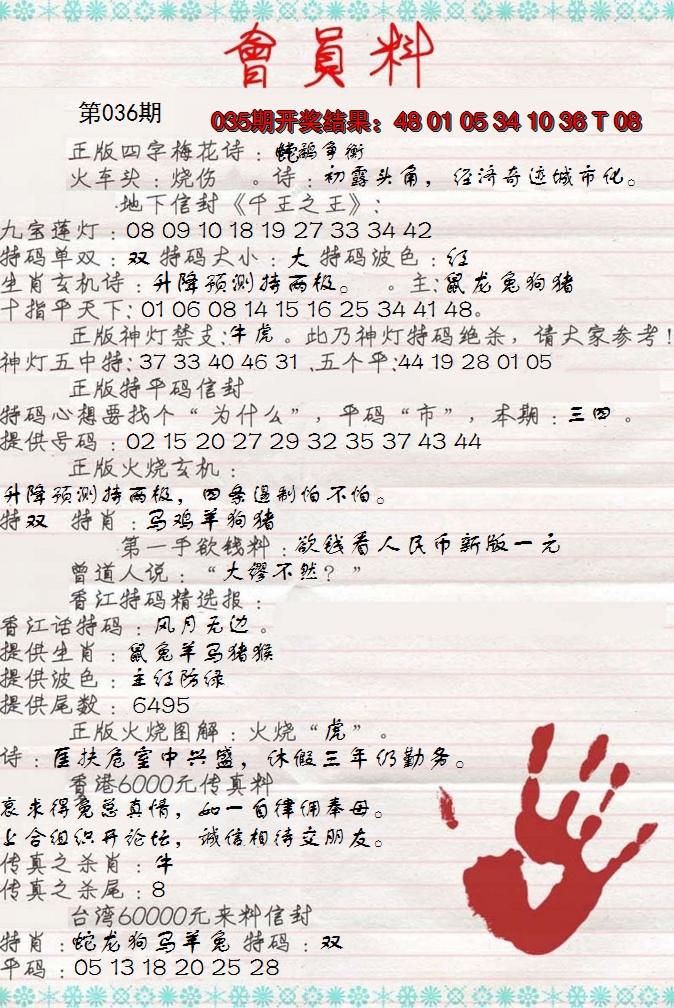 會員料
第036期
035期开奖结果：48 01 05 34 10 36 T 08
正版四字梅花诗：蛇鹬争衡
火车头：烧伤 。诗：初露头角，经济奇迹城市化。
地下信封《千王之王》：
九宝莲灯：08 09 10 18 19 27 33 34 42
特码单双：双 特码大小：大 特码波色：红
生肖玄机诗：升降预测持两极。 。主：鼠龙兔狗猪
十指平天下：01 06 08 14 15 16 25 34 41 48。
正版神灯禁支：牛虎。此乃神灯特码绝杀，请大家参考！
神灯五中特：37 33 40 46 31 、五个平：44 19 28 01 05
正版特平码信封
特码心想要找个“为什么”，平码“市”，本期：三四。
提供号码：02 15 20 27 29 32 35 37 43 44
正版火烧玄机：
升降预测持两极，四条遏制怕不怕。
特双 特肖：马鸡羊狗猪
第一手欲钱料：欲钱看人民币新版一元
曾道人说：“大缪不然？”
香江特码精选报：
香江话特码：风月无边。
提供生肖：鼠兔羊马猪猴
提供波色：主红防绿
提供尾数：6495
正版火烧图解：火烧“虎”。
诗：匡扶危室中兴盛，休假三年仍勤务。
香港6000元传真料
哀求得免总真情，如一自律佣奉母。
上合组织开论坛，诚信相待交朋友。
传真之杀肖：牛
传真之杀尾：8
台湾60000元来料信封
特肖：蛇龙狗马羊兔 特码：双
平码：05 13 18 20 25 28